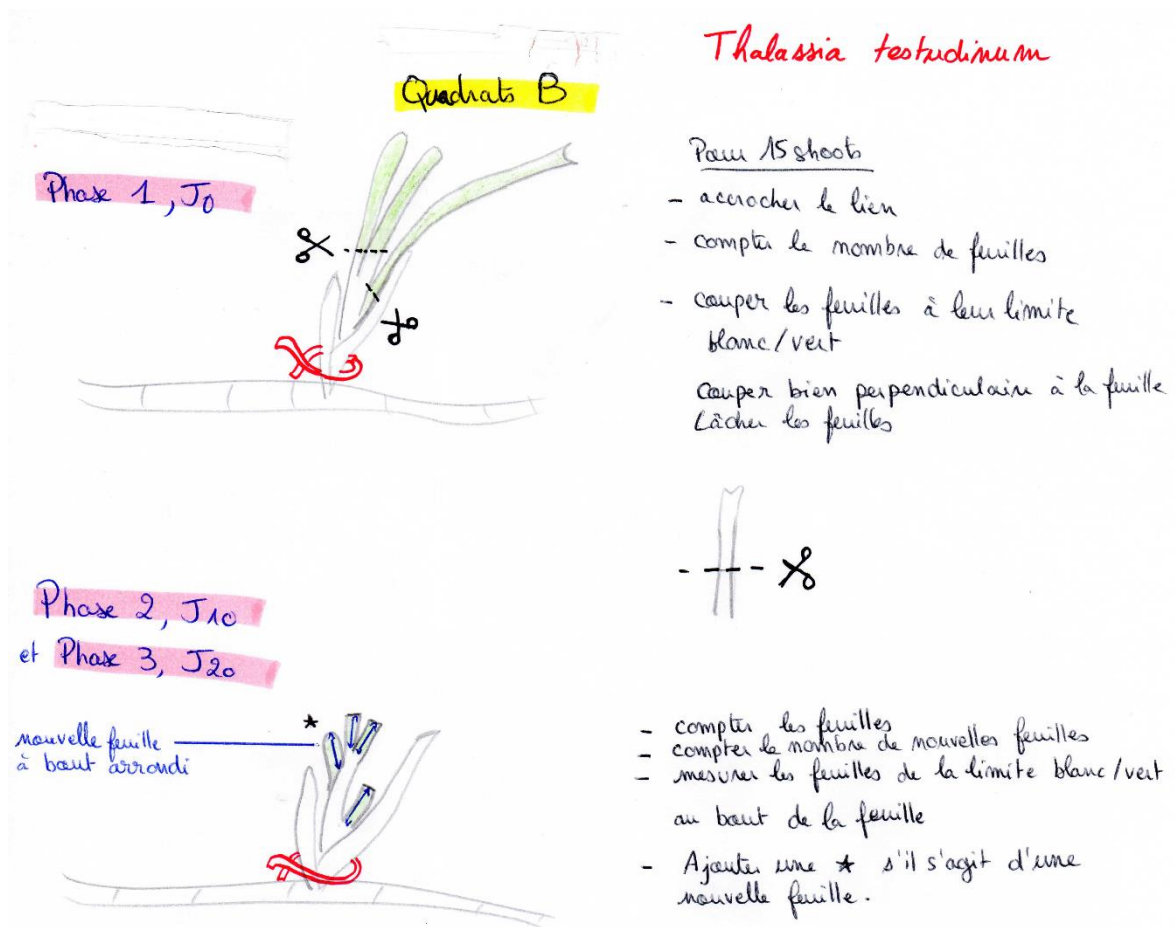 Thalassia testudinum
Quadrats B
Phase 1, J0
Pour 15 shoots
- accrocher le lien
- compter le nombre de feuilles
- couper les feuilles à leur limite
blanc/vert
couper bien perpendiculaire à la feuille
Lâcher les feuilles
Phase 2, J10
et Phase 3, J20
nouvelle feuille
à bout arrondi
- compter les feuilles
- compter le nombre de nouvelles feuilles
- mesurer les feuilles de la limite blanc/vert
au bout de la feuille
- Ajouter une * s'il s'agit d'une
nouvelle feuille.